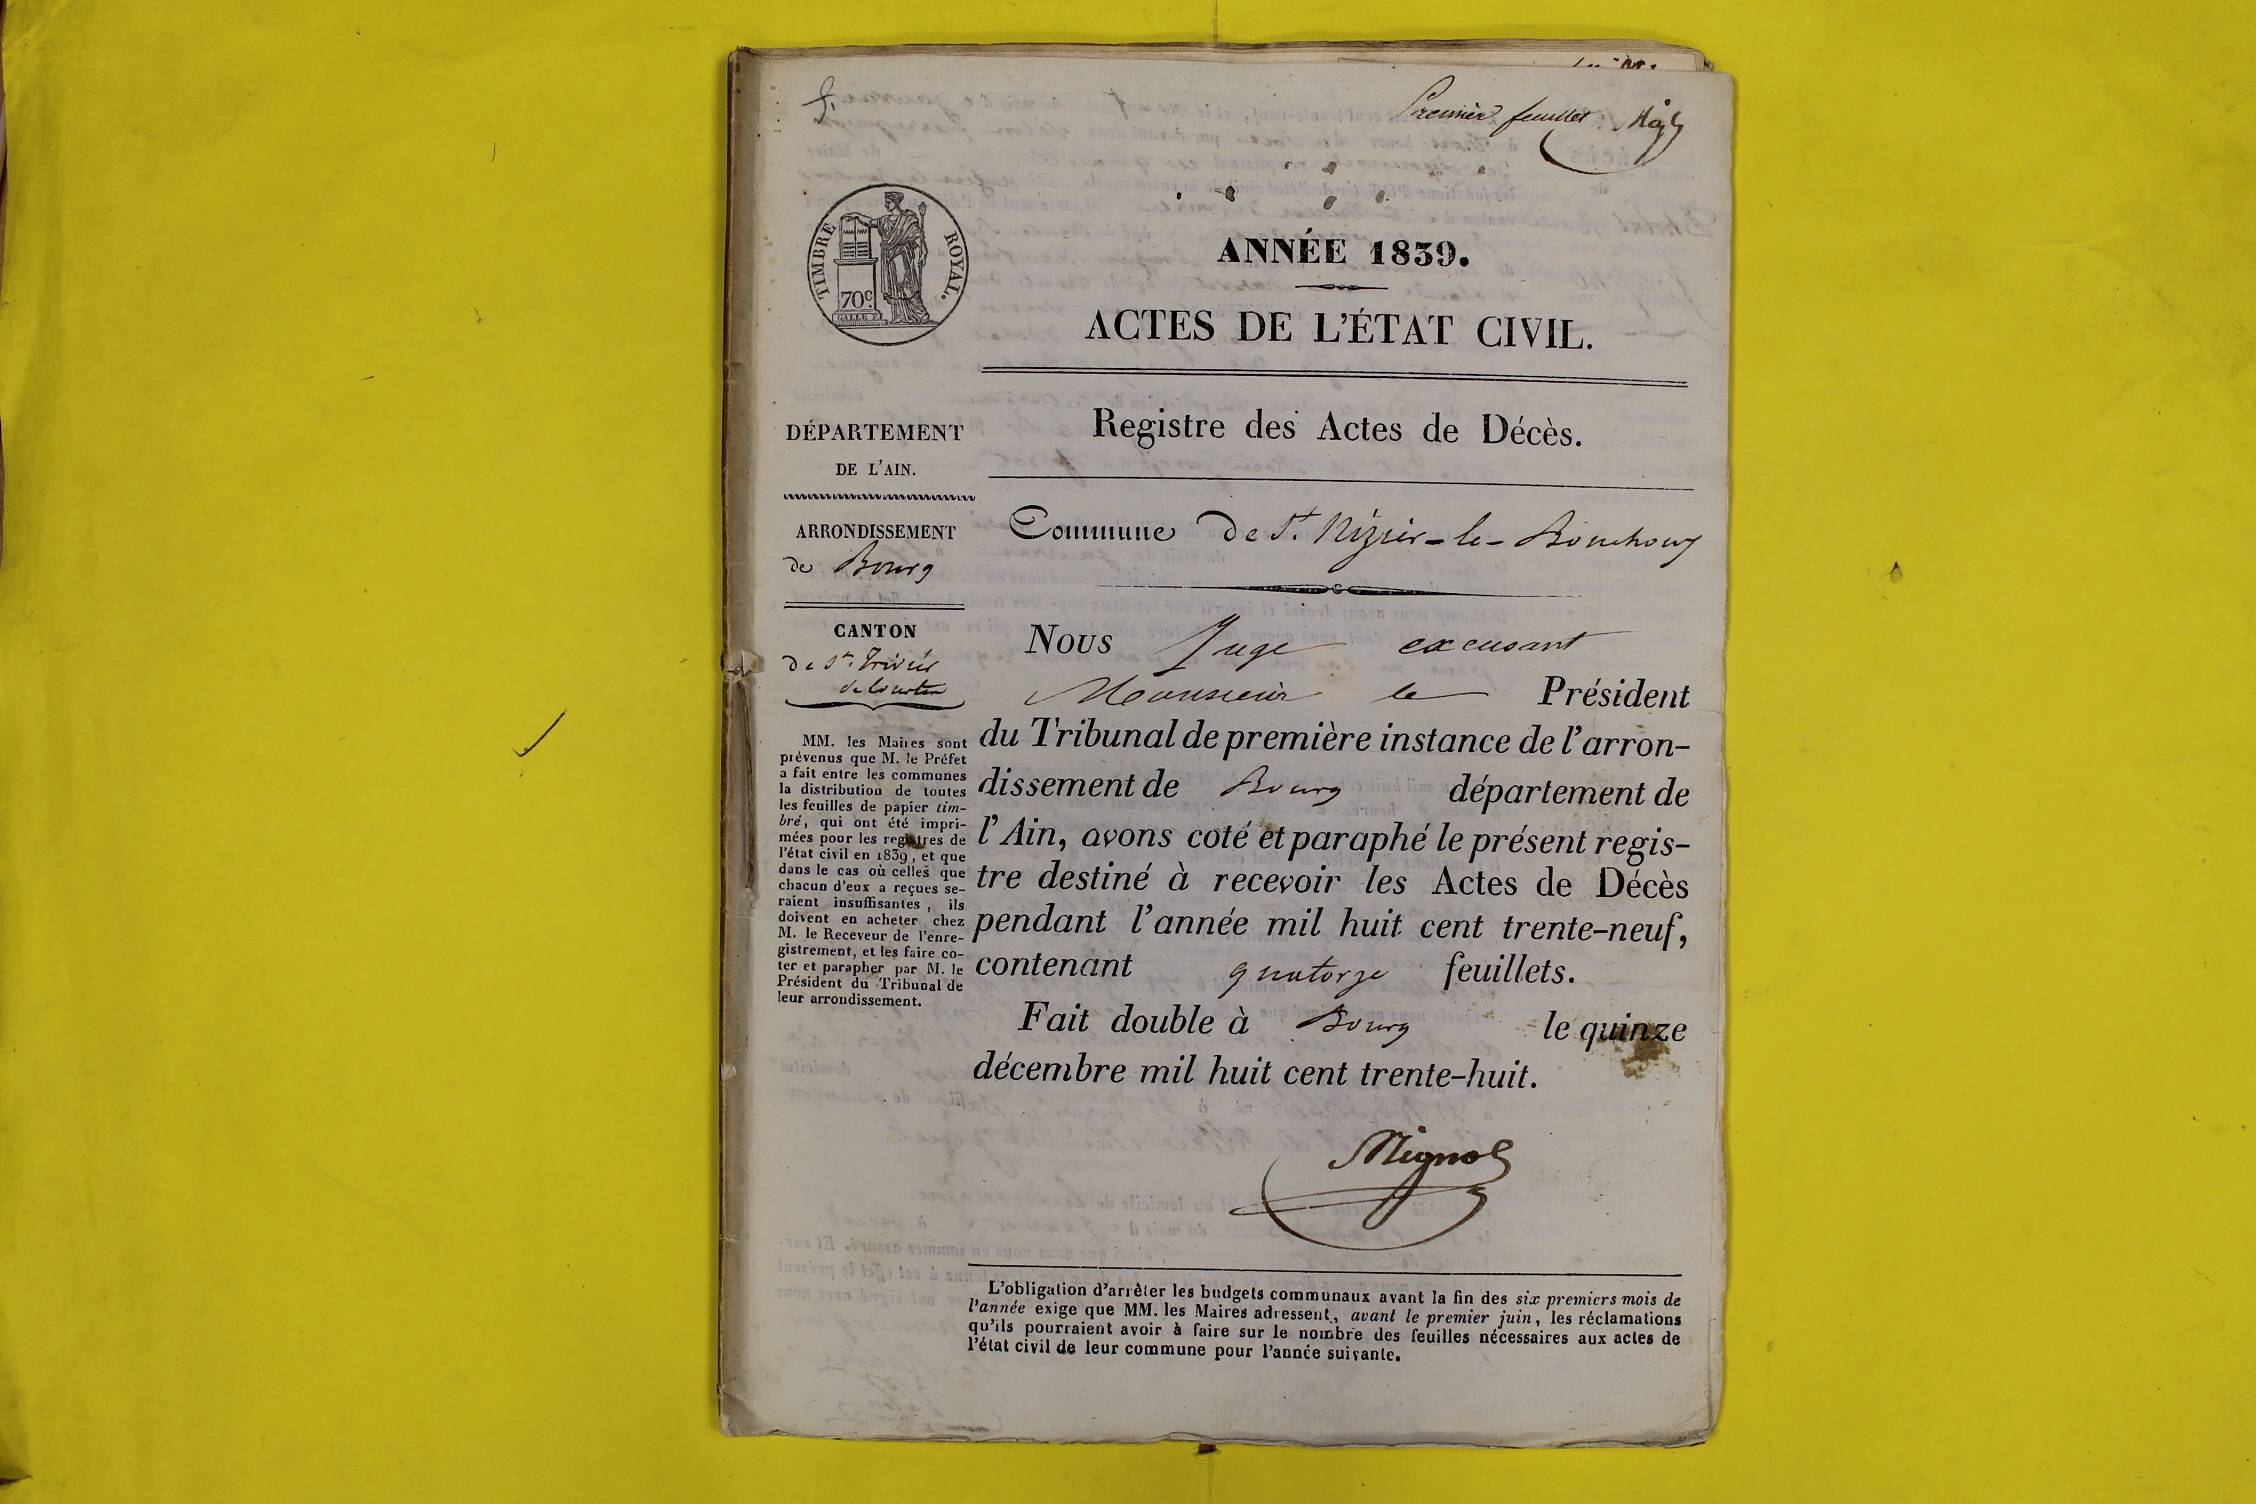 Premier feuillet
TIMBRE ROYAL.
70c.
GALLE F.
ANNÉE 1839.
ACTES DE L'ÉTAT CIVIL.
Registre des Actes de Décès.
DÉPARTEMENT
DE L'AIN.
ARRONDISSEMENT
de Bourg
CANTON
de St. Trivier
de Courtes
MM. les Maires sont
prévenus que M. le Préfet
a fait entre les communes
la distribution de toutes
les feuilles de papier tim-
bré, qui ont été impri-
mées pour les registres de
l'état civil en 1839, et que
dans le cas où celles que
chacun d'eux a reçues se-
raient insuffisantes, ils
doivent en acheter chez
M. le Receveur de l'enre-
gistrement, et les faire co-
ter et parapher par M. le
Président du Tribunal de
leur arrondissement.
Commune de St. Nizier-le-Bouchoux
Nous Juge excusant
Monsieur le Président
du Tribunal de première instance de l'arron-
dissement de Bourg département de
l'Ain, avons coté et paraphé le présent regis-
tre destiné à recevoir les Actes de Décès
pendant l'année mil huit cent trente-neuf,
contenant quatorze feuillets.
Fait double à Bourg le quinze
décembre mil huit cent trente-huit.
Mignot
L'obligation d'arrêter les budgets communaux avant la fin des six premiers mois de
l'année exige que MM. les Maires adressent, avant le premier juin, les réclamations
qu'ils pourraient avoir à faire sur le nombre des feuilles nécessaires aux actes de
l'état civil de leur commune pour l'année suivante.